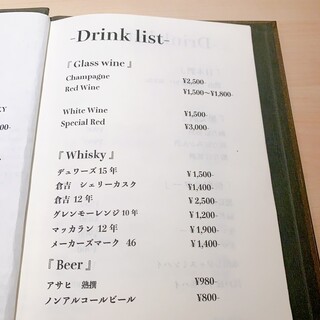 -Drink list-
『Glass wine』
Champagne ¥2,500-
Red Wine ¥1,500~¥1,800-
White Wine ¥1,500-
Special Red ¥3,000-
『Whisky』
デュワーズ 15 年 ¥1,500-
倉吉 シェリーカスク ¥1,400-
倉吉 12 年 ¥2,500-
グレンモーレンジ 10 年 ¥1,200-
マッカラン 12 年 ¥1,900-
メーカーズマーク 46 ¥1,400-
『Beer』
アサヒ 熟撰 ¥980-
ノンアルコールビール ¥800-